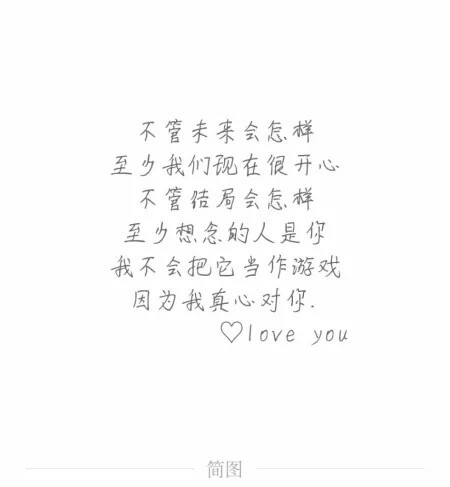 不管未来会怎样
至少我们现在很开心
不管结局会怎样
至少想念的人是你
我不会把它当作游戏
因为我真心对你.
♡love you
简图